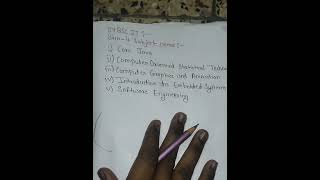 SYBSC IT :-
Sem-4 Subject name :-
i) Core Java
ii) Computer Oriented Statistical Techni
iii) Computer Graphics and Animation
iv) Introduction to Embedded Systems
v) Software Engineering